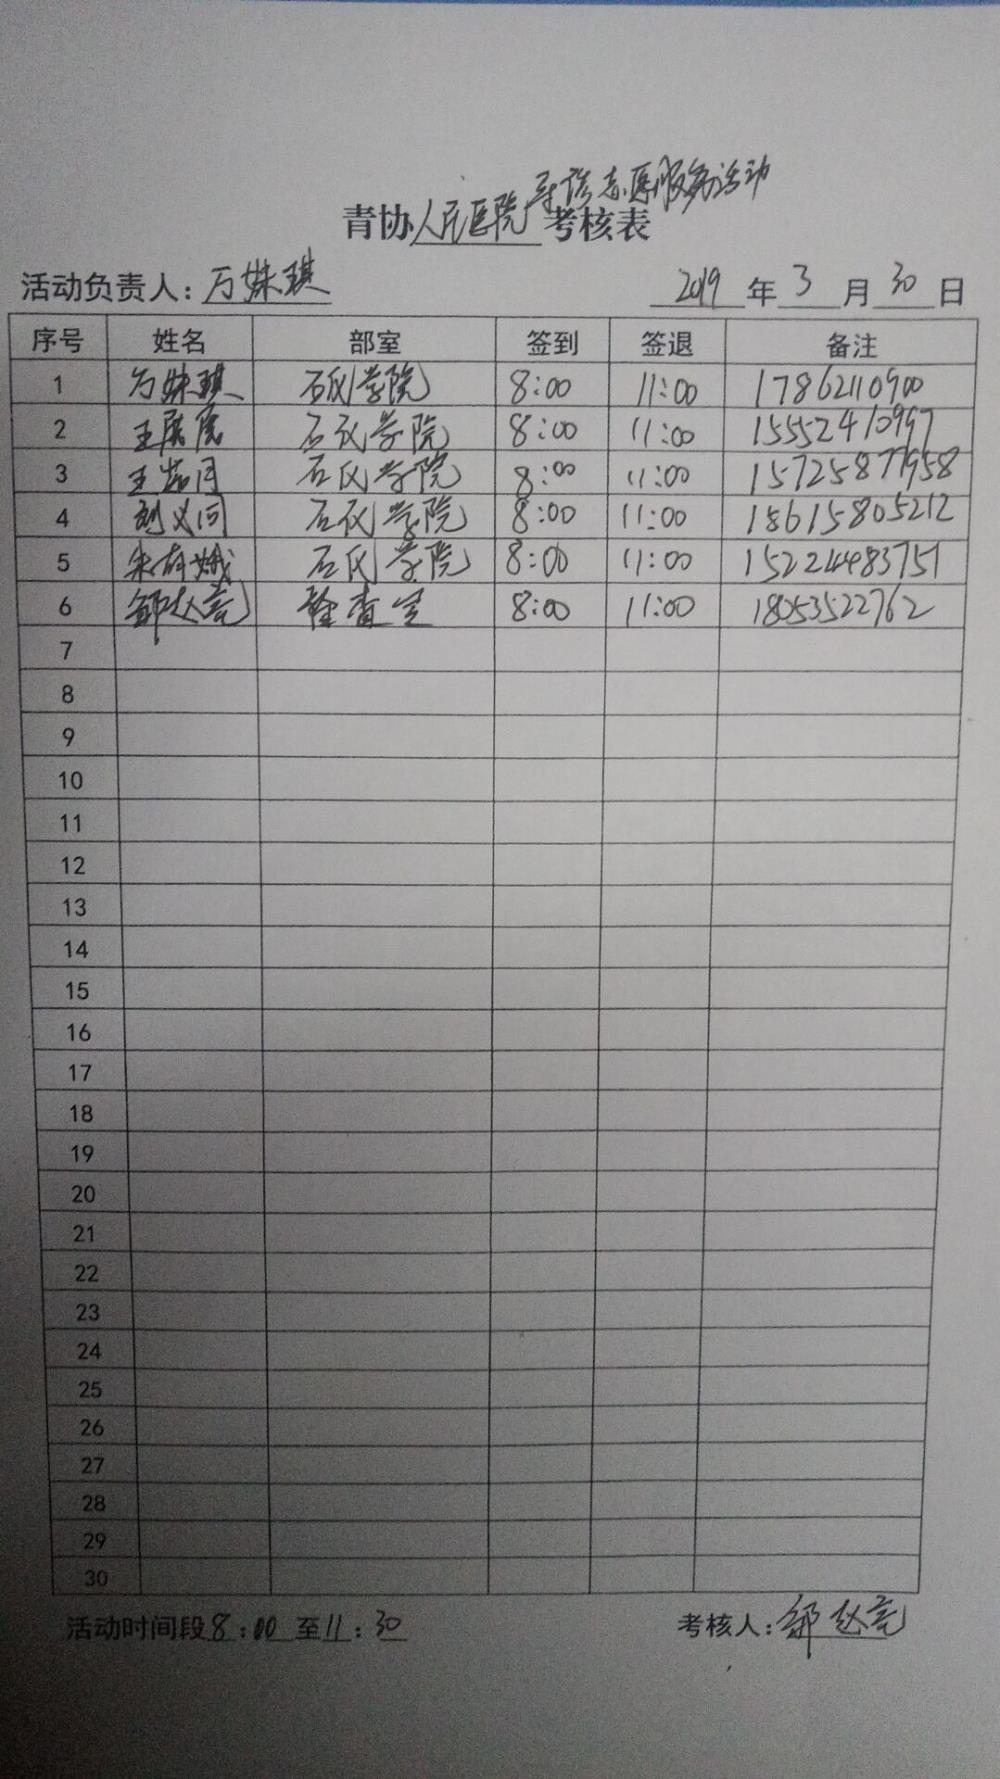 导诊志愿服务活动
青协人民医院考核表
活动负责人：万姝琪 2019年3月30日
序号 姓名 部室 签到 签退 备注
1 万姝琪 石油学院 8:00 11:00 17862110900
2 王 石油学院 8:00 11:00 15552410997
3 王 石油学院 8:00 11:00 15725877958
4 刘义同 石油学院 8:00 11:00 18615805212
5 石油学院 8:00 11:00 15224483751
6 邹赵亮 检查室 8:00 11:00 18053522762
7
8
9
10
11
12
13
14
15
16
17
18
19
20
21
22
23
24
25
26
27
28
29
30
活动时间段8:00至11:30 考核人：邹赵亮